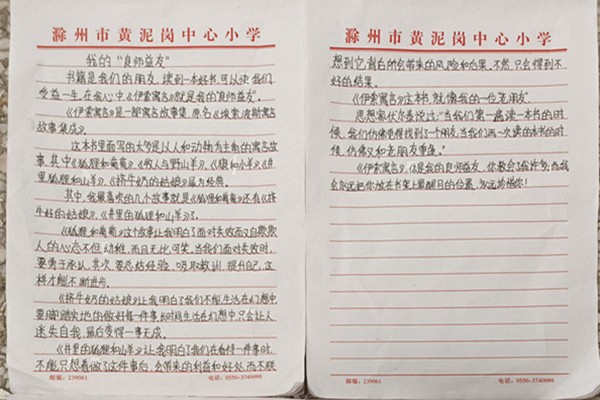 滁州市黄泥岗中心小学
我的“良师益友”
书籍是我们的朋友,读到一本好书,可以使我们
受益一生。在我心中《伊索寓言》就是我的“良师益友”。
《伊索寓言》是一部寓言故事集,原名《埃索波斯寓
言故事集成》。
这本书里面写的大多是以人和动物为主角的寓言故
事,其中《狐狸和葡萄》、《牧人与野山羊》、《狼和小羊》、《井
里的狐狸和山羊》、《挤牛奶的姑娘》最为经典。
其中,我最喜欢的几个故事就是《狐狸和葡萄》还有《挤
牛奶的姑娘》、《井里的狐狸和山羊》了。
《狐狸和葡萄》这个故事让我明白了面对失败而又自欺欺
人的心态不但幼稚,而且无比可笑。当我们面对失败时,
要勇于承认,其次要总结经验,吸取教训,提升自己,这
样才能不断进步。
《挤牛奶的姑娘》让我明白了我们不能生活在幻想中
要脚踏实地的做好每一件事,长时间生活在幻想中只会让人
迷失自我,最后变得一事无成。
《井里的狐狸和山羊》让我明白了我们在看待一件事时,
不能只想着做了这件事后,会带来的利益和好处,而不联
邮编:239061
电话:0550-3740090
滁州市黄泥岗中心小学
想到它背后所会带来的风险和后果,不然只会得到不
好的结果。
《伊索寓言》这本书,就像我的一位老朋友。
思想家伏尔泰说过:“当我们第一遍读一本书的时
候,我们仿佛觉得找到了一个朋友,当我们再一次读这本书的时
候,仿佛又和老朋友重逢。”
《伊索寓言》,你是我的良师益友,你教会了我许多,而我
会永远把你放在书架上最醒目的位置,
邮编:239061
电话:0550-3740090